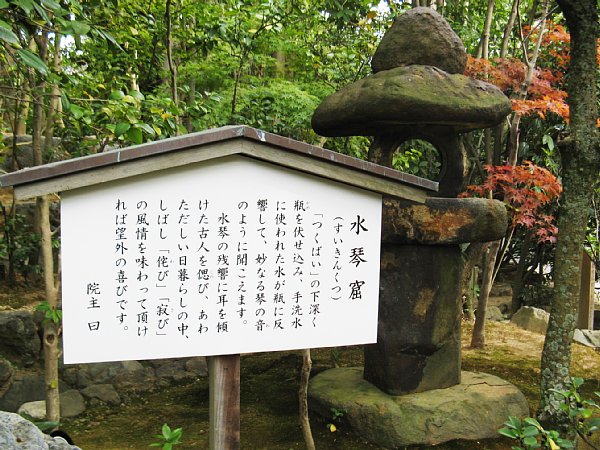 水琴窟
(すいきんくつ)
「つくばい」の下深く
瓶を伏せ込み、手洗水
に使われた水が瓶に反
響して、妙なる琴の音
のように聞こえます。
水琴の残響に耳を傾
けた古人を偲び、あわ
ただしい日暮らしの中、
しばし「侘び」「寂び」
の風情を味わって頂け
れば望外の喜びです。
院主 曰